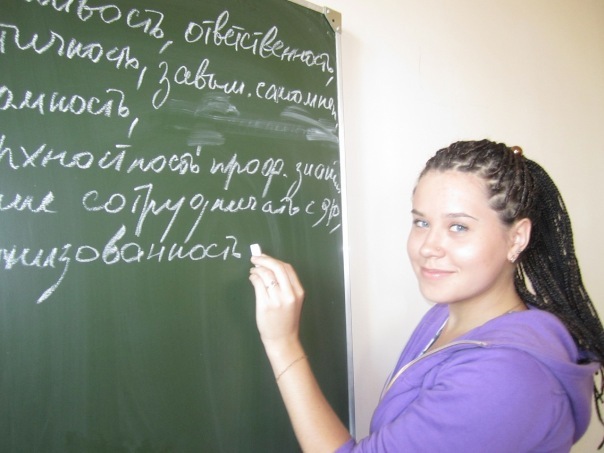 ивость, ответственность,
тичность, завыш. самооцен
омность,
рхностность проф. знаний
ние сотрудничать с др,
низованность